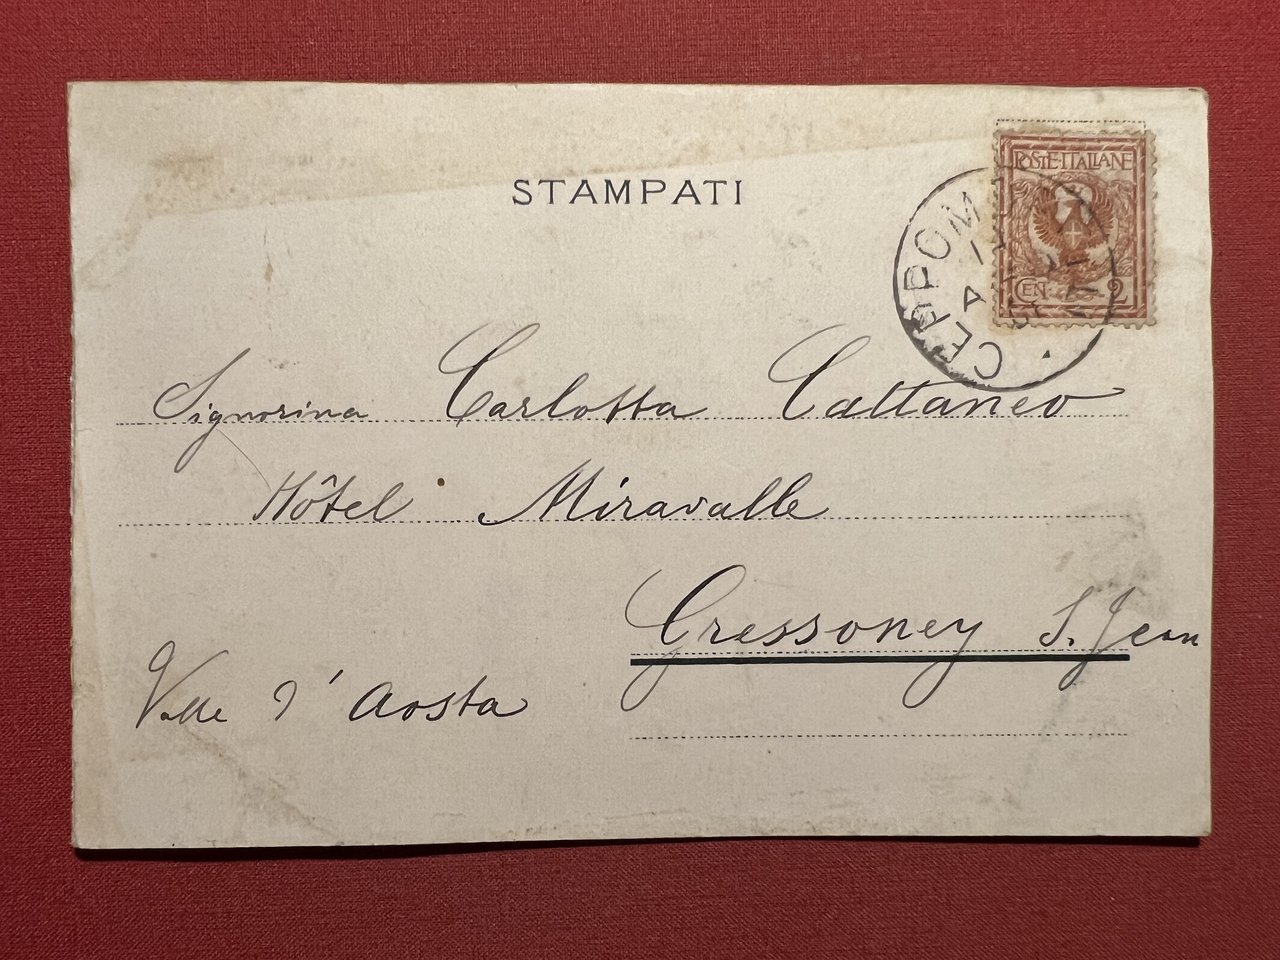 STAMPATI
POSTE·ITALIANE
CEN 2
CEPPOM
Signorina Carlotta Cattaneo
Hôtel Miravalle
Gressoney S. Jean
Valle d'Aosta